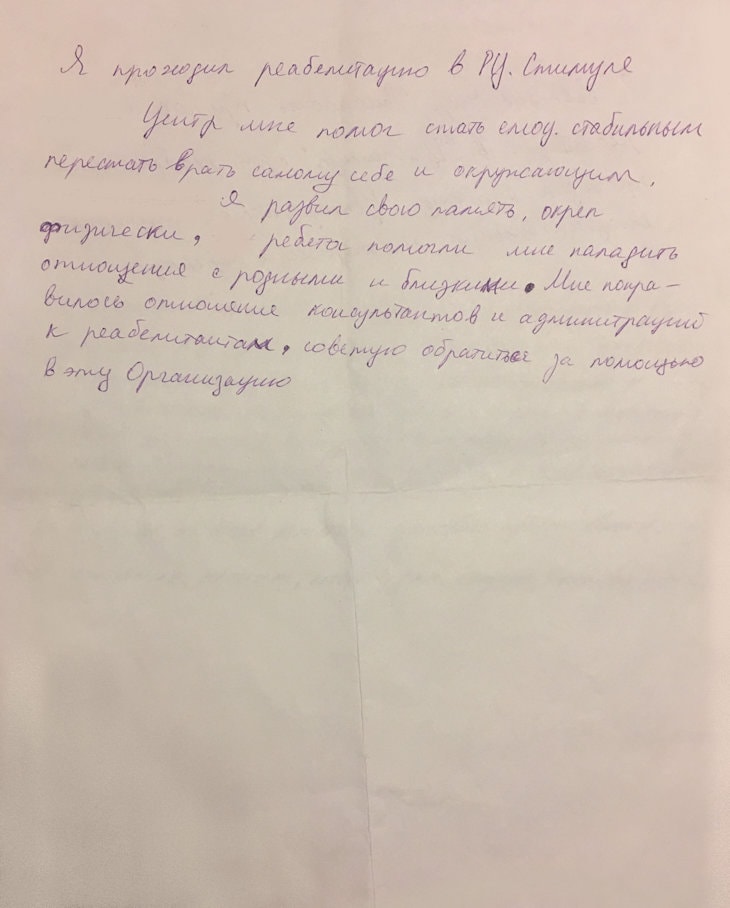 Я проходил реабелитацию в РЦ. Стимуле
Центр мне помог стать эмоц. стабильным
перестать врать самому себе и окружающим.
Я развил свою память, окреп
физически, ребята помогли мне наладить
отнощения с родными и близкими. Мне понра-
вилось отношение консультантов и админитраций
к реабелитантам, советую обратиться за помощью
в эту Организацию